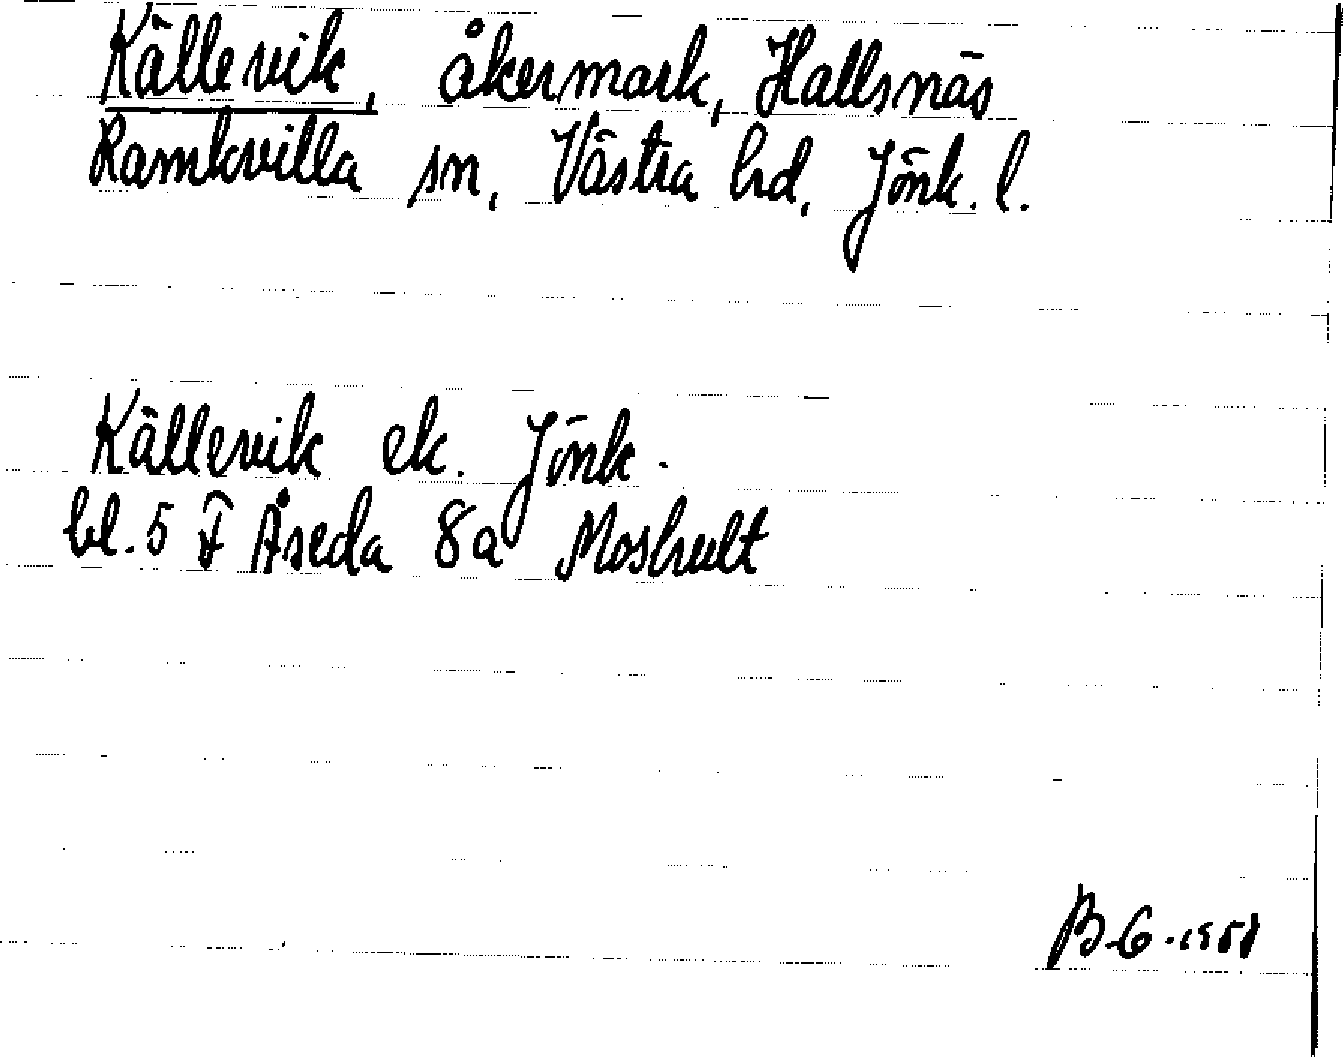 Källevik, åkermark, Hallsnäs
Ramkvilla sn, Västra hd, Jönk. l.
Källevik ek. Jönk.
bl. 5 F Åseda 8a Moshult
B-G.